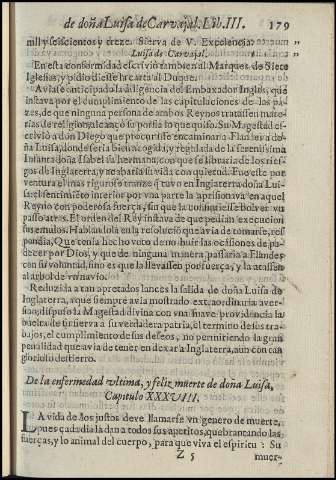 de doña Luisa de Carvajal. Lib. III. 179
mil y seiscientos y treze. Sierva de V. Excelencia. „
Luisa de Carvajal. „
En esta conformidad escrivió tambien al Marques de Siete
Iglesias, y pidio diesse la carta al Duque.
Aviase anticipado la diligencia del Embaxador Inglés, que
instava por el cumplimiento de las capitulaciones de las pa-
zes, de que ninguna persona de ambos Reynos tratasse mate-
rias de religion; alcançò
crivió a don Diego que procurasse encaminar a Flandes a do-
ña Luisa, donde seria bien acogida, y regalada de la serenissima
Infanta doña Isabel su hermana, con que se libraria de los ries-
gos de Inglaterra, y acabaria su vida con quietud. Fue este por
ventura el mas riguroso trance que tuvo en Inglaterra doña Lui-
sa; el sentimiento interior por una parte la aprisionava en aquel
Reyno con poderosa fuerça, sin que la consintiesse bolver un
passo atras. El orden del Rey instava de que pedian execucion
sus emulos. Hablandola en la resolucion que avia de tomar, res-
pondia, Que tenia hecho voto de no huir las ocasiones de pa-
decer por Dios, y que de ninguna manera passaria a Flandes
con su voluntad, sino es que la llevassen por fuerça, y la atassen
al arbol de un navio.
Reduzida a tan apretados lances la salida de doña Luisa de
Inglaterra, a que siempre avia mostrado extraordinaria aver-
sion, dispuso la Magestad divina con una suave providencia la
buelta de su sierva a su verdadera patria, el termino de sus tra-
bajos, el cumplimiento de sus deseos, no permitiendo la gran
penalidad que avia de tener en dexar a Inglaterra, aun con can-
ge del destierro.
De la enfermedad ultima, y feliz muerte de doña Luisa,
Capitulo XXXVIII.
LA vida de los justos deve llamarse un genero de muerte,
pues cada dia la dan a todos sus apetitos, quebrantando las
fuerças, y lo animal del cuerpo, para que viva el espiritu: Su
Z 5 muer-